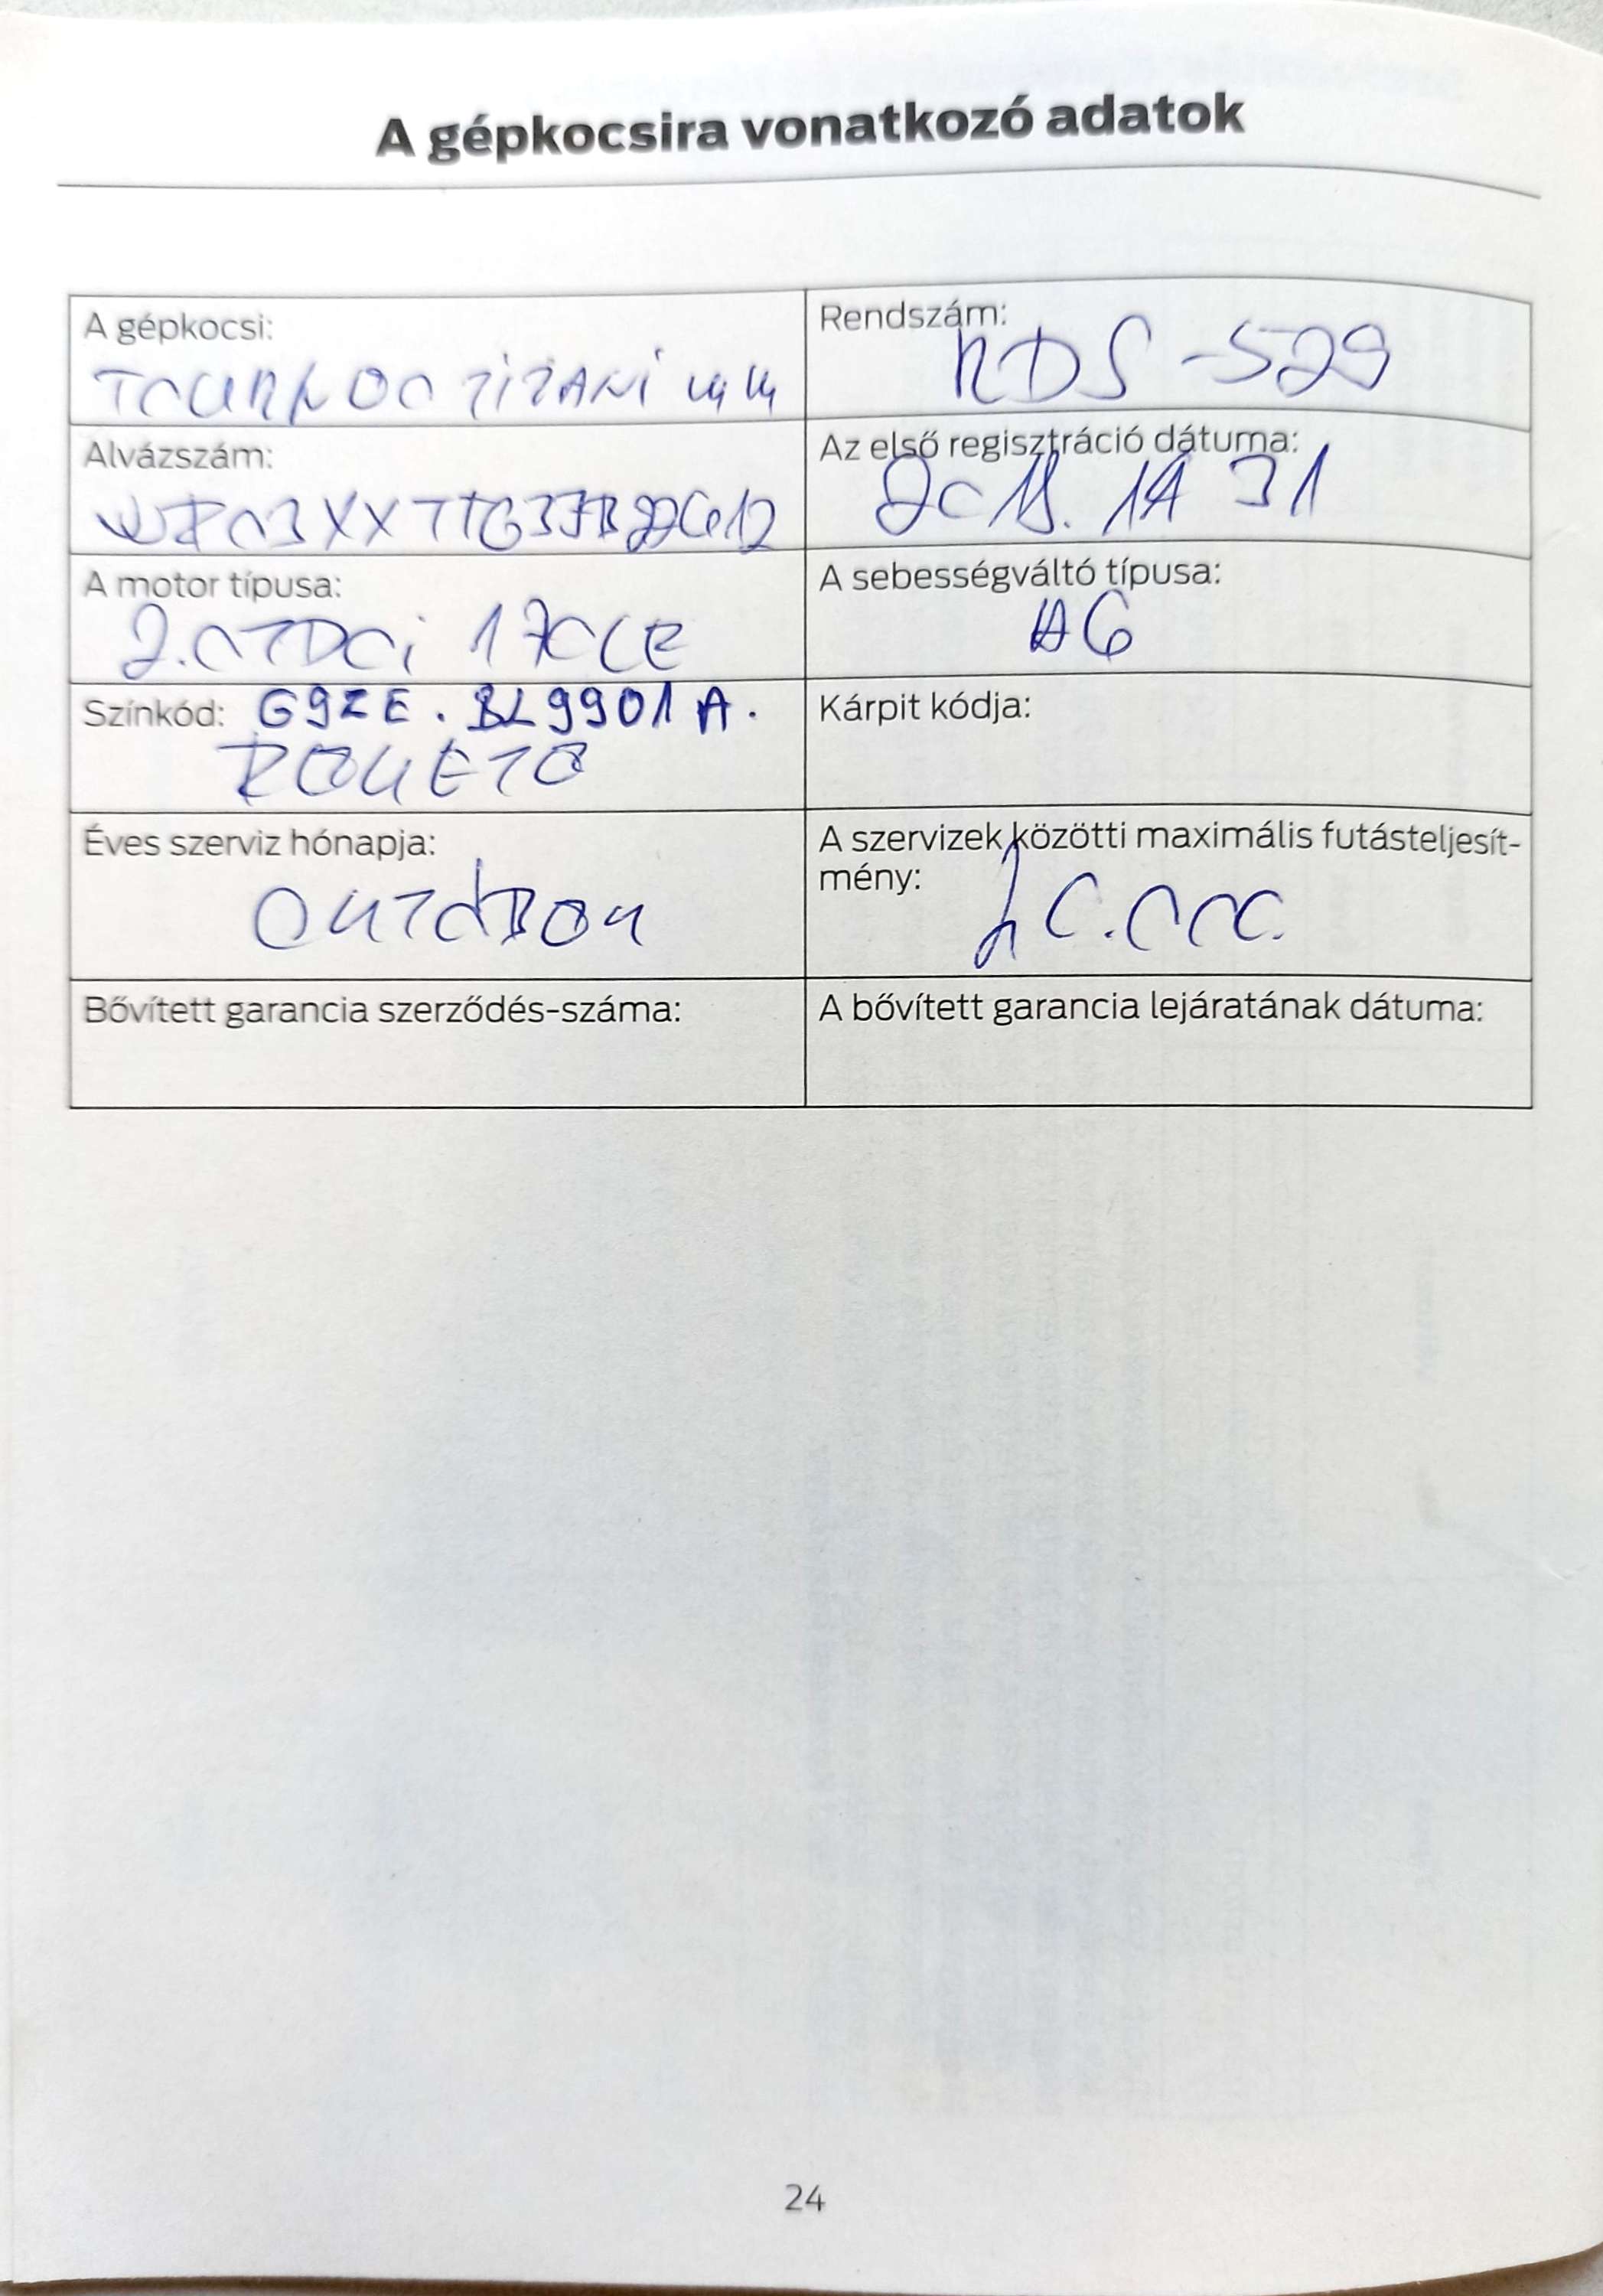 A gépkocsira vonatkozó adatok
A gépkocsi:
TOURNEO TITANIUM
Rendszám:
RDS-529
Alvázszám:
Az első regisztráció dátuma:
A motor típusa:
2.0 TDCi 170LE
A sebességváltó típusa:
A6
Színkód: G9ZE. BL9901A.
Kárpit kódja:
Éves szerviz hónapja:
OKTÓBER
A szervizek közötti maximális futásteljesít-
mény:
Bővített garancia szerződés-száma:
A bővített garancia lejáratának dátuma:
24